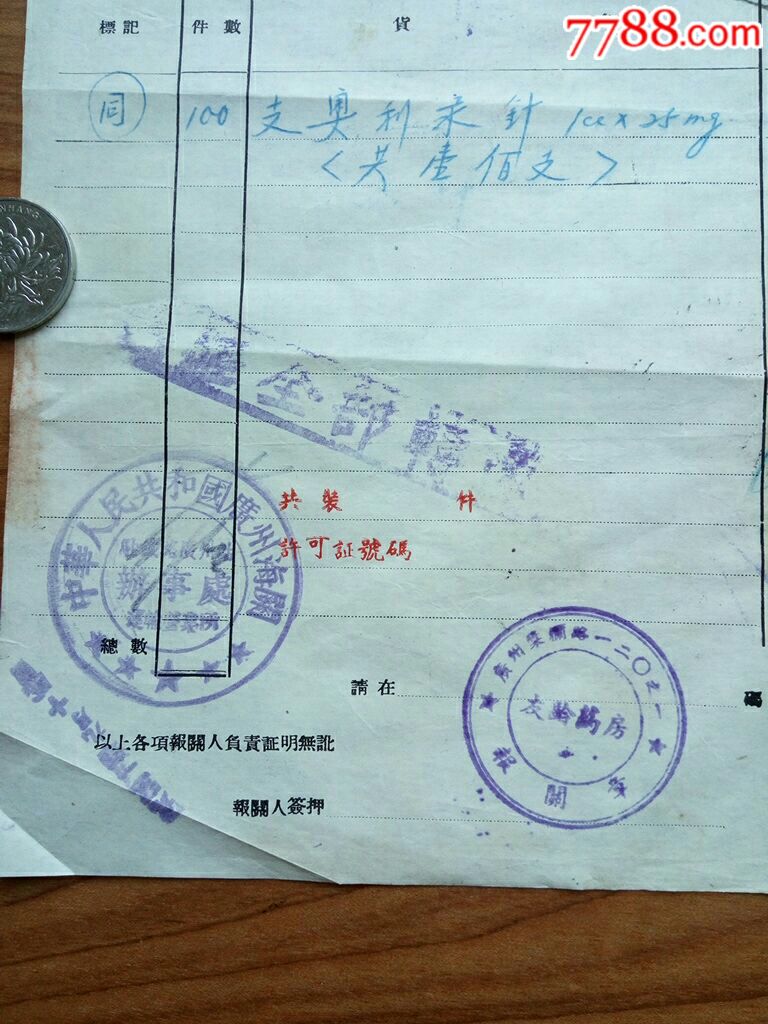 7788.com
標記 件數 貨
同 100 支奥利來針 1cc x 25mg
〈共壹佰支〉
全部
共裝 件
許可証號碼
中華人民共和國廣州海關
辦事處
總數
請在
廣州梁園路一二〇之一
房
報關
以上各項報關人負責証明無訛
報關人簽押